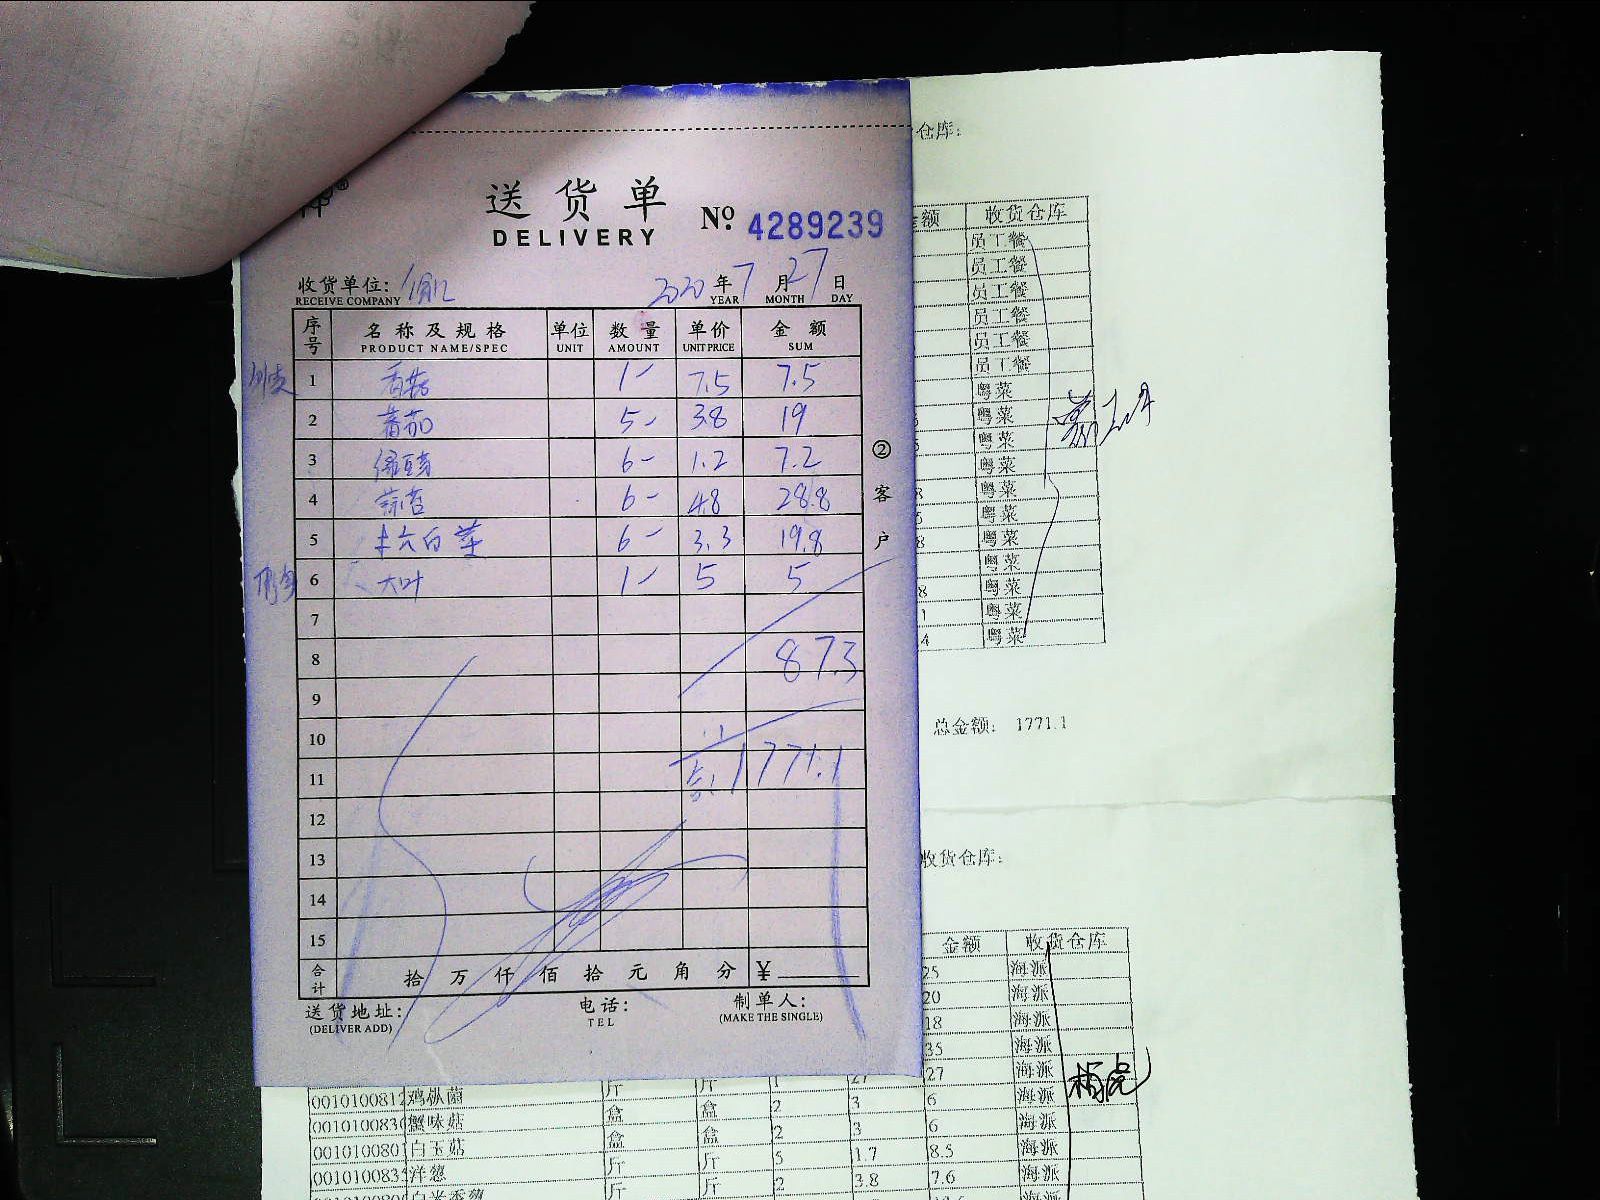 送货单
DELIVERY
No. 4289239
收货单位:
RECEIVE COMPANY
2020 年 7 月 27 日
YEAR MONTH DAY
序号 名称及规格 单位 数量 单价 金额
PRODUCT NAME/SPEC UNIT AMOUNT UNIT PRICE SUM
1 香菇 1- 7.5 7.5
2 蕃茄 5- 3.8 19
3 6- 1.2 7.2
4 6- 4.8 28.8
5 白菜 6- 3.3 19.8
6 大叶 1- 5 5
7
8 87.3
9
10
11 1771.1
12
13
14
15
合计 拾 万 仟 佰 拾 元 角 分 ¥
送货地址:
(DELIVER ADD)
电话:
TEL
制单人:
(MAKE THE SINGLE)
②客户
仓库:
额 收货仓库
员工餐
员工餐
员工餐
员工餐
员工餐
员工餐
粤菜
粤菜
粤菜
粤菜
8 粤菜
粤菜
8 粤菜
粤菜
8 粤菜
粤菜
4 粤菜
总金额: 1771.1
收货仓库:
金额 收货仓库
25 海派
20 海派
18 海派
35 海派
0010100812 鸡枞菌 斤 斤 1 27 27 海派
001010083 蟹味菇 盒 盒 2 3 6 海派
001010080 白玉菇 盒 盒 2 3 6 海派
001010083 洋葱 斤 斤 5 1.7 8.5 海派
斤 斤 2 3.8 7.6 海派